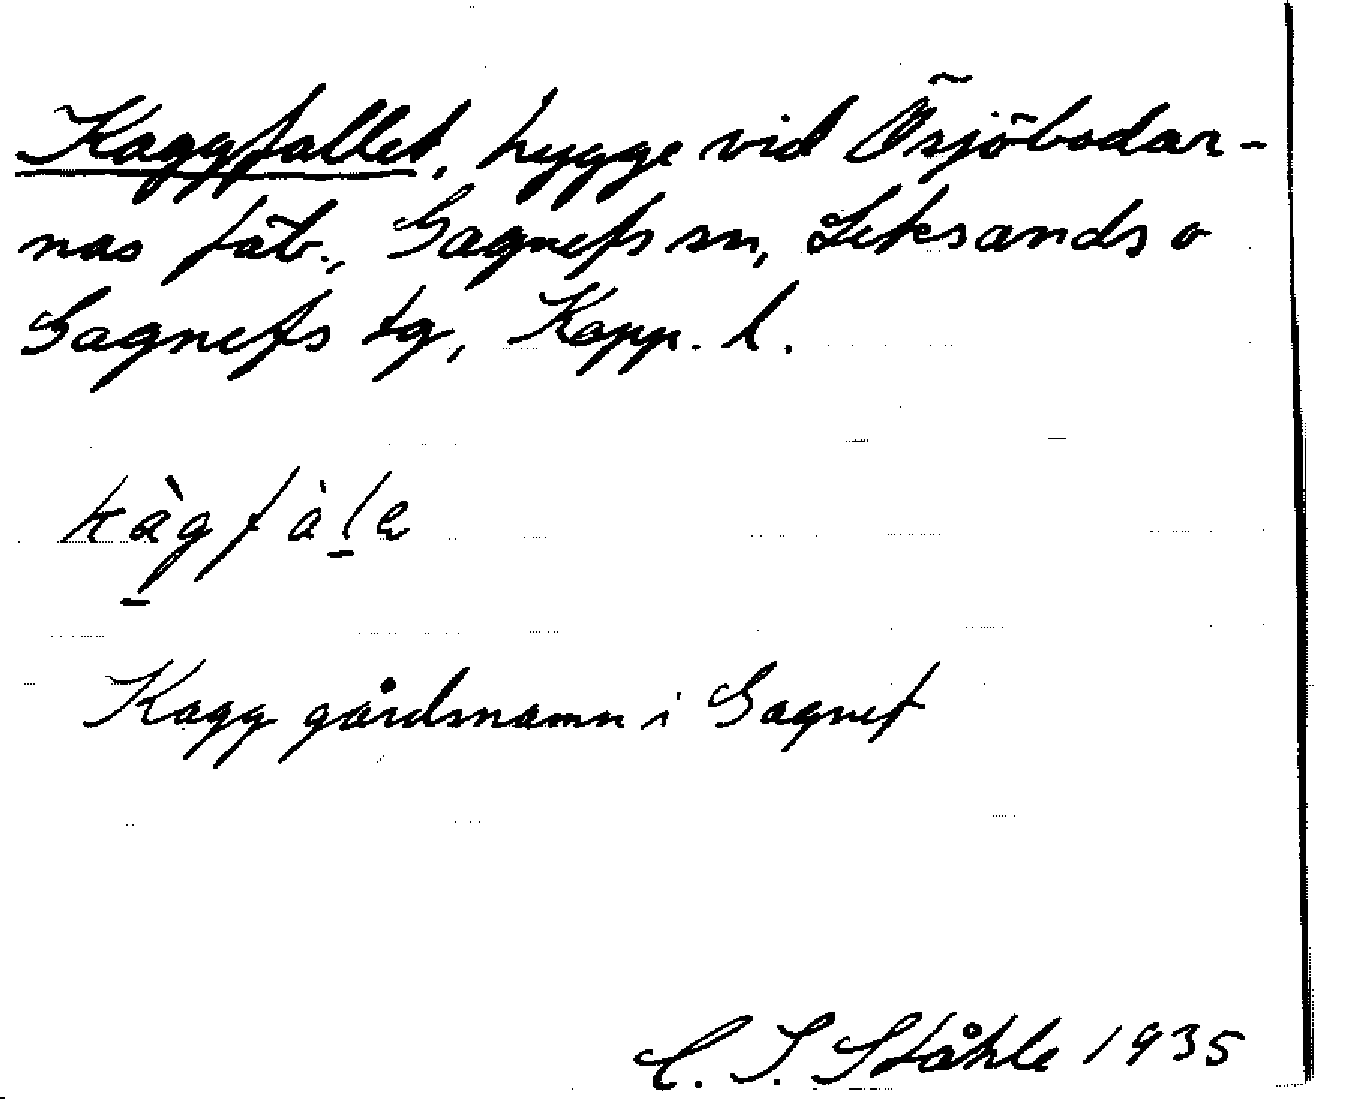 Kaggfallet, hygge vid Ösjöbodar-
nas fäb., Gagnefs sn, Leksands o
Gagnefs tg, Kopp. l.
kàg̠fàl̠e
Kagg gårdsnamn i Gagnef
C. I. Ståhle 1935